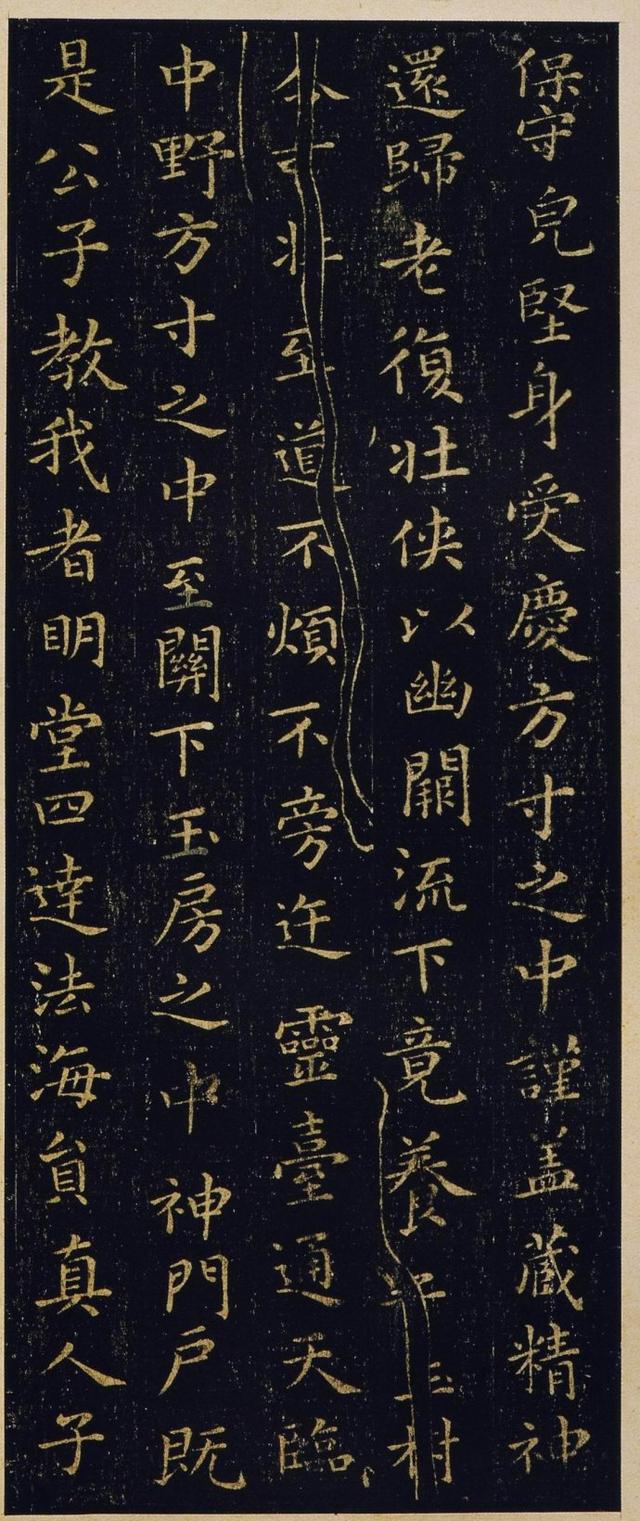 保守皃堅身受慶方寸之中謹盖藏精神
還歸老復壮侠以幽闕流下竟養子玉樹
令可壮至道不煩不旁迕靈臺通天臨
中野方寸之中至關下玉房之中神門户既
是公子教我者明堂四達法海員真人子